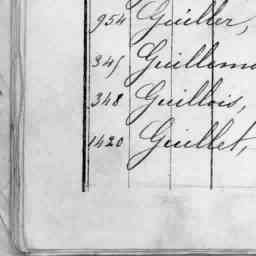 954 Guiller,
345 Guillemo
348 Guillois,
1420 Guillet,